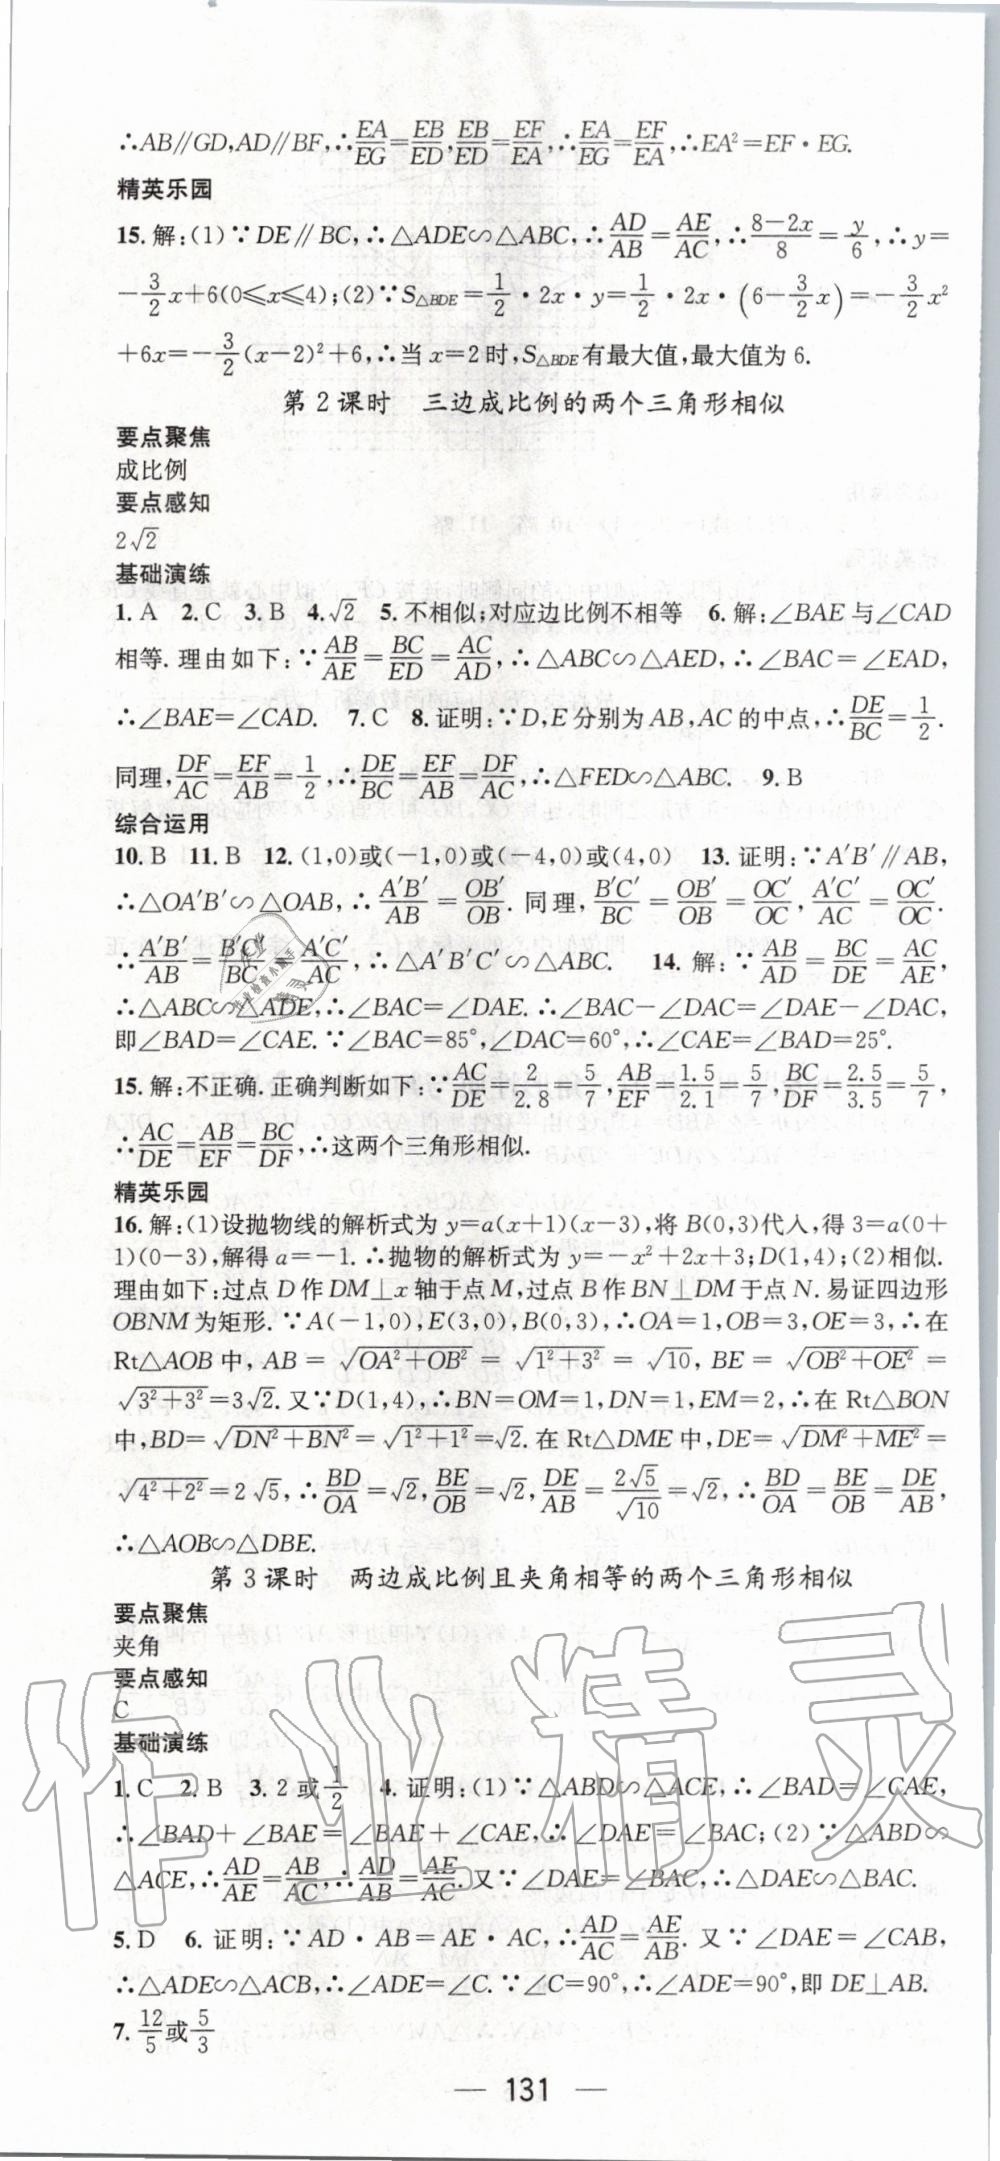 ∴AB∥GD,AD∥BF,∴EA/EG=EB/ED,EB/ED=EF/EA,∴EA/EG=EF/EA,∴EA²=EF·EG.
精英乐园
15.解:(1)∵DE∥BC,∴△ADE∽△ABC,∴AD/AB=AE/AC,∴(8-2x)/8=y/6,∴y=
-3/2x+6(0≤x≤4);(2)∵S△BDE=1/2·2x·y=1/2·2x·(6-3/2x)=-3/2x²
+6x=-3/2(x-2)²+6,∴当x=2时,S△BDE有最大值,最大值为6.
第2课时 三边成比例的两个三角形相似
要点聚焦
成比例
要点感知
2√2
基础演练
1.A 2.C 3.B 4.√2 5.不相似;对应边比例不相等 6.解:∠BAE与∠CAD
相等.理由如下:∵AB/AE=BC/ED=AC/AD,∴△ABC∽△AED,∴∠BAC=∠EAD,
∴∠BAE=∠CAD. 7.C 8.证明:∵D,E分别为AB,AC的中点,∴DE/BC=1/2.
同理,DF/AC=EF/AB=1/2,∴DE/BC=EF/AB=DF/AC,∴△FED∽△ABC. 9.B
综合运用
10.B 11.B 12.(1,0)或(-1,0)或(-4,0)或(4,0) 13.证明:∵A′B′∥AB,
∴△OA′B′∽△OAB,∴A′B′/AB=OB′/OB.同理,B′C′/BC=OB′/OB=OC′/OC,A′C′/AC=OC′/OC.
∴A′B′/AB=B′C′/BC=A′C′/AC,∴△A′B′C′∽△ABC. 14.解:∵AB/AD=BC/DE=AC/AE,
∴△ABC∽△ADE,∴∠BAC=∠DAE.∴∠BAC-∠DAC=∠DAE-∠DAC,
即∠BAD=∠CAE.∵∠BAC=85°,∠DAC=60°,∴∠CAE=∠BAD=25°.
15.解:不正确.正确判断如下:∵AC/DE=2/2.8=5/7,AB/EF=1.5/2.1=5/7,BC/DF=2.5/3.5=5/7,
∴AC/DE=AB/EF=BC/DF,∴这两个三角形相似.
精英乐园
16.解:(1)设抛物线的解析式为y=a(x+1)(x-3),将B(0,3)代人,得3=a(0+
1)(0-3),解得a=-1.∴抛物的解析式为y=-x²+2x+3;D(1,4);(2)相似.
理由如下:过点D作DM⊥x轴于点M,过点B作BN⊥DM于点N.易证四边形
OBNM为矩形.∵A(-1,0),E(3,0),B(0,3),∴OA=1,OB=3,OE=3,∴在
Rt△AOB中,AB=√(OA²+OB²)=√(1²+3²)=√10,BE=√(OB²+OE²)=
√(3²+3²)=3√2.又∵D(1,4),∴BN=OM=1,DN=1,EM=2,∴在Rt△BON
中,BD=√(DN²+BN²)=√(1²+1²)=√2.在Rt△DME中,DE=√(DM²+ME²)=
√(4²+2²)=2√5,∴BD/OA=√2,BE/OB=√2,DE/AB=2√5/√10=√2,∴BD/OA=BE/OB=DE/AB,
∴△AOB∽△DBE.
第3课时 两边成比例且夹角相等的两个三角形相似
要点聚焦
夹角
要点感知
C
基础演练
1.C 2.B 3.2或1/2 4.证明:(1)∵△ABD∽△ACE,∴∠BAD=∠CAE,
∴∠BAD+∠BAE=∠BAE+∠CAE,∴∠DAE=∠BAC;(2)∵△ABD∽
△ACE,∴AD/AE=AB/AC,∴AD/AB=AE/AC.又∵∠DAE=∠BAC,∴△DAE∽△BAC.
5.D 6.证明:∵AD·AB=AE·AC,∴AD/AC=AE/AB.又∵∠DAE=∠CAB,
∴△ADE∽△ACB,∴∠ADE=∠C.∵∠C=90°,∴∠ADE=90°,即DE⊥AB.
7.12/5或5/3
— 131 —
作业精灵